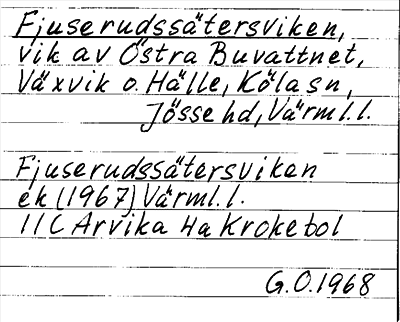 Fjuserudssätersviken,
vik av Östra Buvattnet,
Växvik o. Hälle, Köla sn,
Jösse hd, Värml. l.
Fjuserudssätersviken
ek (1967) Värml. l.
11C Arvika Ha Kroketol
G.O. 1968